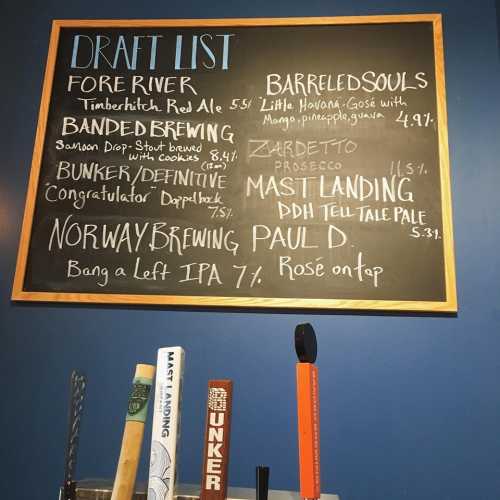 DRAFT LIST
FORE RIVER
Timberhitch Red Ale 5.5%
BANDED BREWING
Samoan Drop - Stout brewed
with cookies 8.4%
(12oz)
BUNKER/DEFINITIVE
"Congratulator" Doppelbock
7.5%
NORWAY BREWING
Bang a Left IPA 7%
BARRELED SOULS
"Little Havana - Gosé with
Mango, pineapple, guava 4.9%
ZARDETTO
PROSECCO 11.5%
MAST LANDING
DDH TELL TALE PALE
5.3%
PAUL D.
Rosé on tap
MAST LANDING
BUNKER